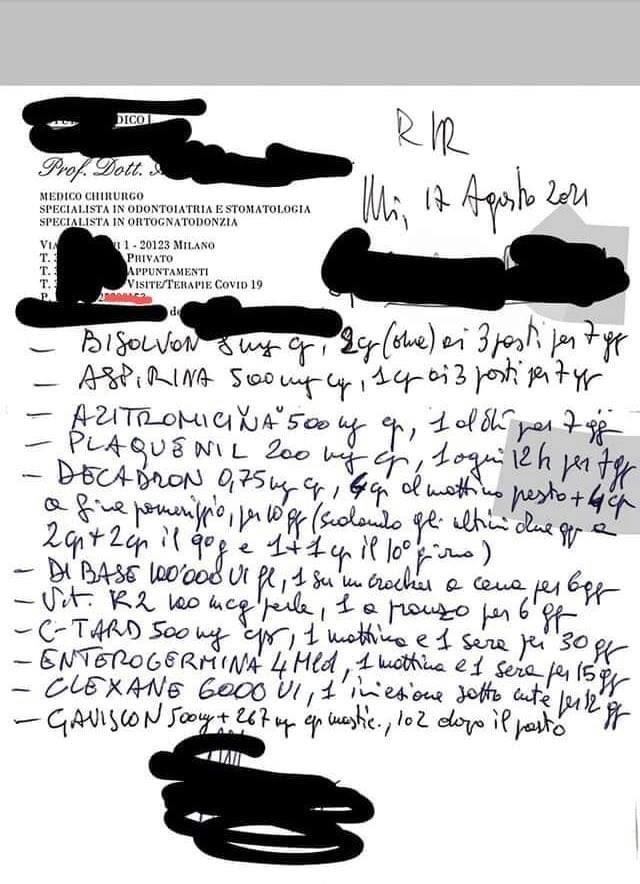 DICO
R/R
Prof. Dott.
MEDICO CHIRURGO
SPECIALISTA IN ODONTOIATRIA E STOMATOLOGIA
SPECIALISTA IN ORTOGNATODONZIA
Mi, 17 Agosto 2021
1 - 20123 MILANO
T. PRIVATO
T. APPUNTAMENTI
T. VISITE/TERAPIE COVID 19
P.
de
- BISOLVON 8 mg cp, 2 cp (due) ai 3 pasti per 7 gg
- ASPIRINA 500 mg cp, 1 cp ai 3 pasti per 7 gg
- AZITROMICINA 500 mg cp, 1 al dì per 7 gg
- PLAQUENIL 200 mg cp, 1 ogni 12 h per 7 gg
- DECADRON 0,75 mg cp, 4 cp al mattino presto + 4 cp
a fine pomeriggio, per 10 gg (scalando gli ultimi due gg a
2 cp + 2 cp il 9° g e 1 + 1 cp il 10° giorno)
- DIBASE 100'000 UI fl, 1 su un cracker a cena per 6 gg
- Vit. K2 100 mcg perle, 1 a pranzo per 6 gg
- C-TARD 500 mg cps, 1 mattina e 1 sera per 30 gg
- ENTEROGERMINA 4 Mld, 1 mattina e 1 sera per 15 gg
- CLEXANE 6000 UI, 1 iniezione sotto cute per 12 gg
- GAVISCON 500 mg + 267 mg cp mastic., 1 o 2 dopo il pasto